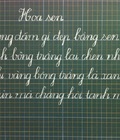 Hoa sen
ng đầm gì đẹp bằng sen
h bông trắng lại chen nh
ị vàng bông trắng lá xan
ùn mà chẳng hôi tanh m